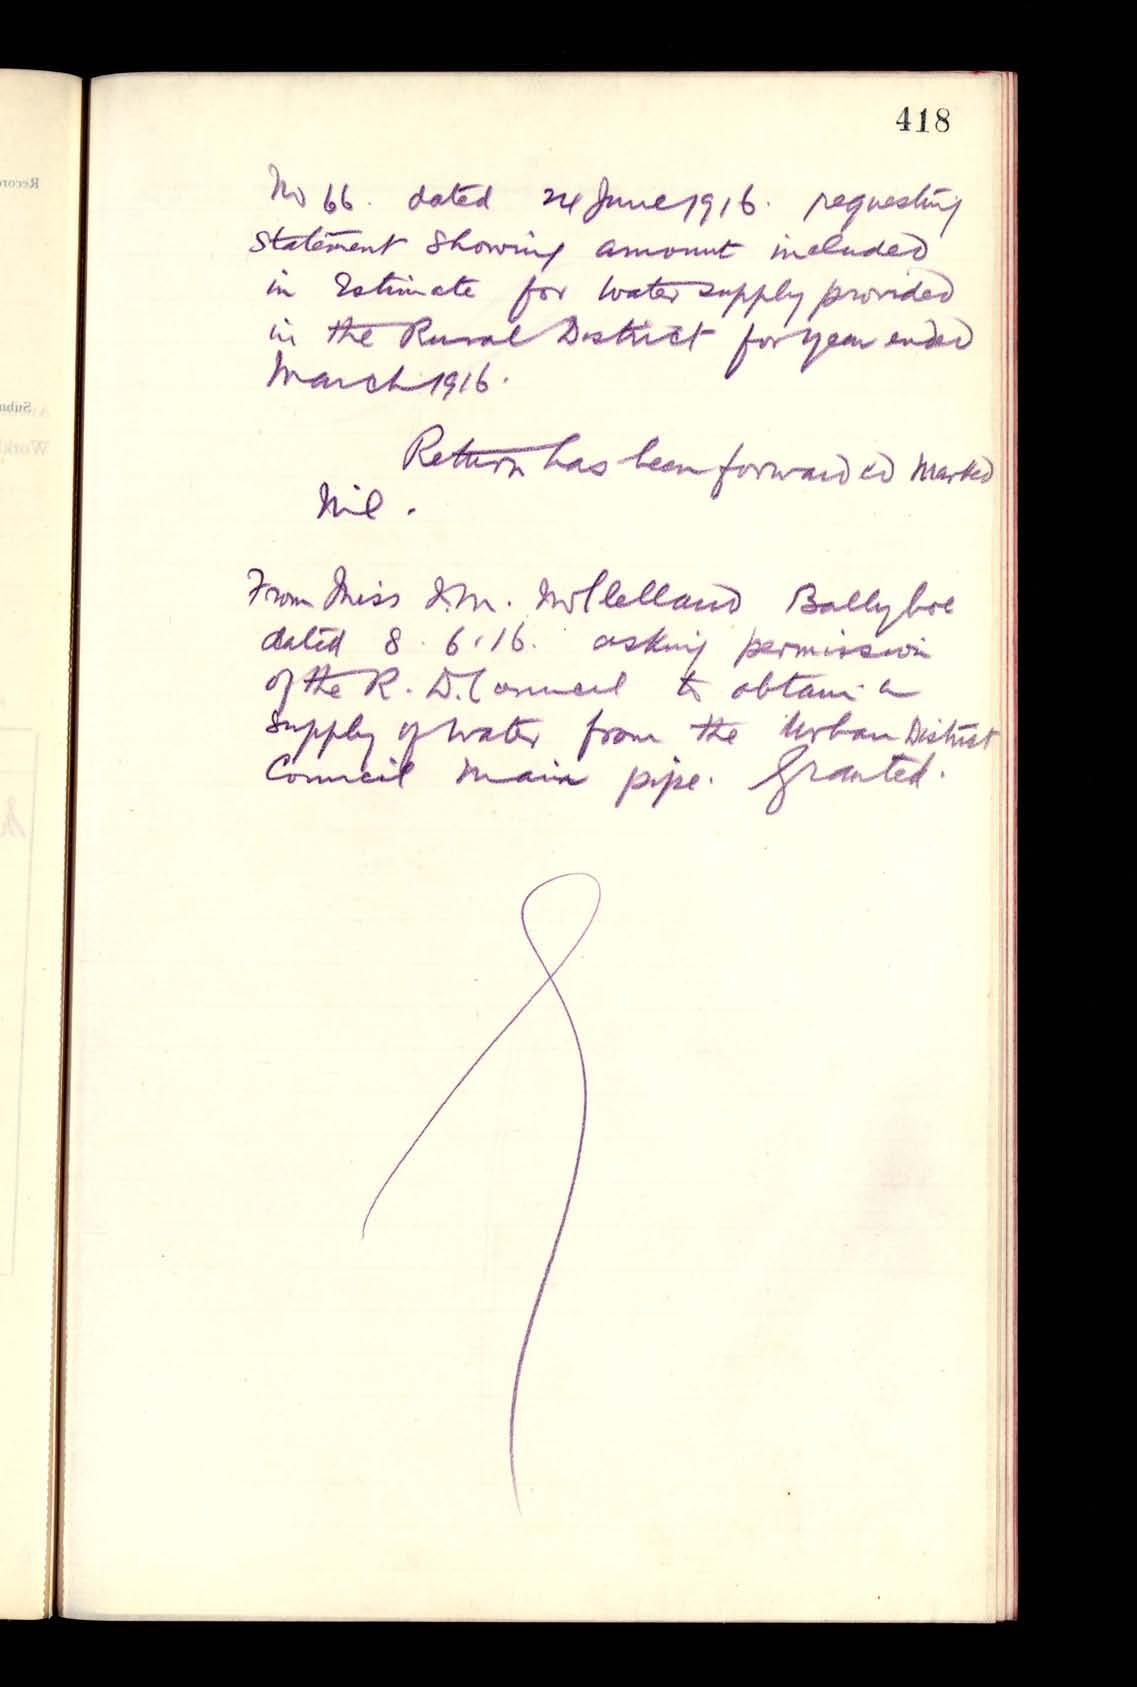 418
No 66. dated 24 June 1916. requesting
Statement Showing amount included
in Estimate for Water supply provided
in the Rural District for year ended
March 1916.
Return has been forwarded marked
Nil.
From Miss McClelland Ballyboe
dated 8.6.16. asking permission
of the R. D. Council to obtain a
supply of water from the Urban District
Council main pipe. Granted.